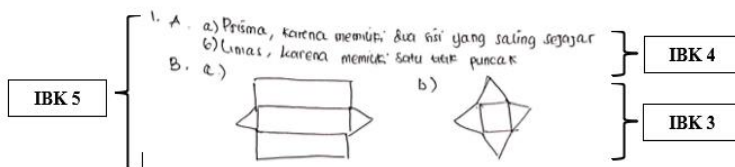 1. A. a) Prisma, karena memiliki dua sisi yang saling sejajar
b) Limas, karena memiliki satu titik puncak
IBK 4
B. a.)
b)
IBK 5
IBK 3